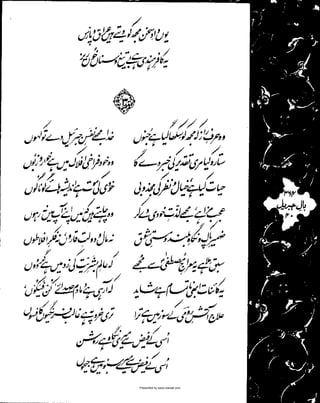 یوں دادِ سخن مجھ کو دیتے ہیں عراق و پارس
یہ کافرِ ہندی ہے بے تیغ و سناں خوں ریز
وہ حرفِ راز کہ مجھ کو سکھا گیا ہے جنوں
خدا مجھے نفسِ جبرئیل دے تو کہوں
ستارہ کیا مری تقدیر کی خبر دے گا
وہ خود فراخیِ افلاک میں ہے خوار و زبوں
حیات کیا ہے، خیال و نظر کی مجذوبی
خودی کی موت ہے اندیشہ ہائے گوناگوں
عجب مزا ہے، مجھے لذتِ خودی دے کر
وہ چاہتے ہیں کہ میں اپنے آپ میں نہ رہوں
ضمیرِ پاک و نگاہِ بلند و مستیِ شوق
نہ مال و دولتِ قاروں، نہ فکرِ افلاطوں
سبق ملا ہے یہ معراجِ مصطفیٰؐ سے مجھے
کہ عالمِ بشریت کی زد میں ہے گردوں
یہ کائنات ابھی ناتمام ہے شاید
کہ آ رہی ہے دمادم صدائے کن فیکوں
علاج آتشِ رومی کے سوز میں ہے ترا
تری خرد پہ ہے غالب فرنگیوں کا فسوں
اسی کے فیض سے میری نگاہ ہے روشن
اسی کے فیض سے میرے سبو میں ہے جیحوں
بالِ جبریل